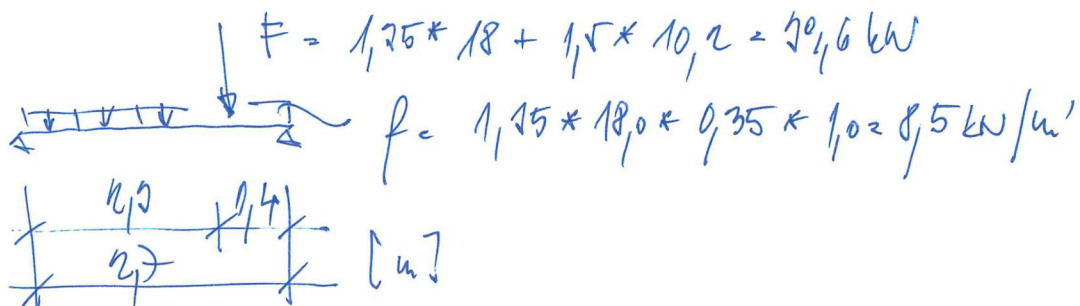 F = 1,35 * 18 + 1,5 * 10,2 = 39,6 kN
f = 1,35 * 18,0 * 0,35 * 1,0 = 8,5 kN/m'
2,3 0,4
2,7 [m]